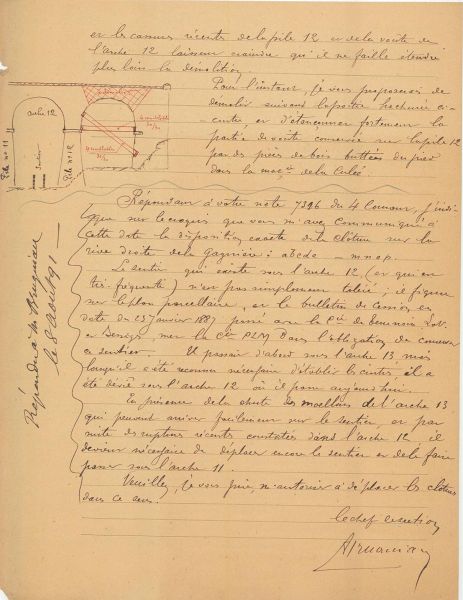 et les cassures récentes de la pile 12 et de la voûte de
l'arche 12 laissent craindre qu'il ne faille étendre
plus loin la démolition
Pour l'instant, je vous proposerai de
démolir suivant la portée hachurée ci-
contre et d'étançonner fortement la
partie de voûte conservée sur la pile 12
par des pièces de bois buttées du pied
dans la maçie de la culée
arche 12
Pile no 11
Pile no 12
Sentier
Répondant à votre note 7396 du 4 courant, j'indi-
que sur le croquis que vous m'avez communiqué à
cette date la disposition exacte de la clôture sur la
rive droite de la : abcde - mnop.
Le sentier qui existe sous l'arche 12, (et qui en
très fréquenté) n'est pas simplement toléré ; il figure
sur le plan parcellaire, et le bulletin de cession, en
date du 23 Janvier 1887 passé avec la Cie de
et met la Cie PLM dans l'obligation de conserver
ce sentier. Il passait d'abord sous l'arche 13 mais
lorsqu'il a été reconnu nécessaire d'établir les cintres il a
été dévié sous l'arche 12 où il passe aujourd'hui.
En présence de la chute des moellons de l'arche 13
qui peuvent arriver facilement sur le sentier, et par
suite des ruptures récentes constatées dans l'arche 12, il
devient nécessaire de déplacer encore le sentier et de le faire
passer sous l'arche 11.
Veuillez, je vous prie, m'autoriser à déplacer les clôtures
dans ce sens.
Le chef de section
Répondu à M.
le 8 août 91